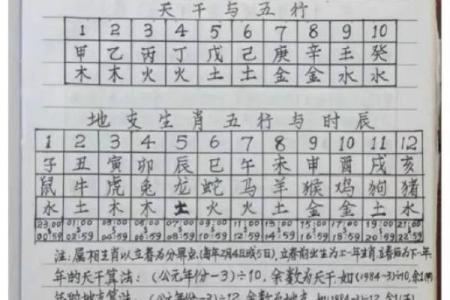 天干与五行
1 2 3 4 5 6 7 8 9 10
甲 乙 丙 丁 戊 己 庚 辛 壬 癸
木 木 火 火 土 土 金 金 水 水
地支生肖五行与时辰
1 2 3 4 5 6 7 8 9 10 11 12
子 丑 寅 卯 辰 巳 午 未 申 酉 戌 亥
鼠 牛 虎 兔 龙 蛇 马 羊 猴 鸡 狗 猪
水 土 木 木 土 火 火 土 金 金 土 水
23:00 01:00 03:00 05:00 07:00 09:00 11:00
00:59 02:59 04:59 06:59 08:59
注:属相生肖以立春为分界点(每年2月4日或5日),立春前出生为上一年生肖,立春后为下一年.
年的天干算法:(公元年份-3)÷10,余数为天干,如(1984-3)÷10,余
年的地支算法:(公元年份-3)÷12,余数为地支,如(1984-3)÷12,